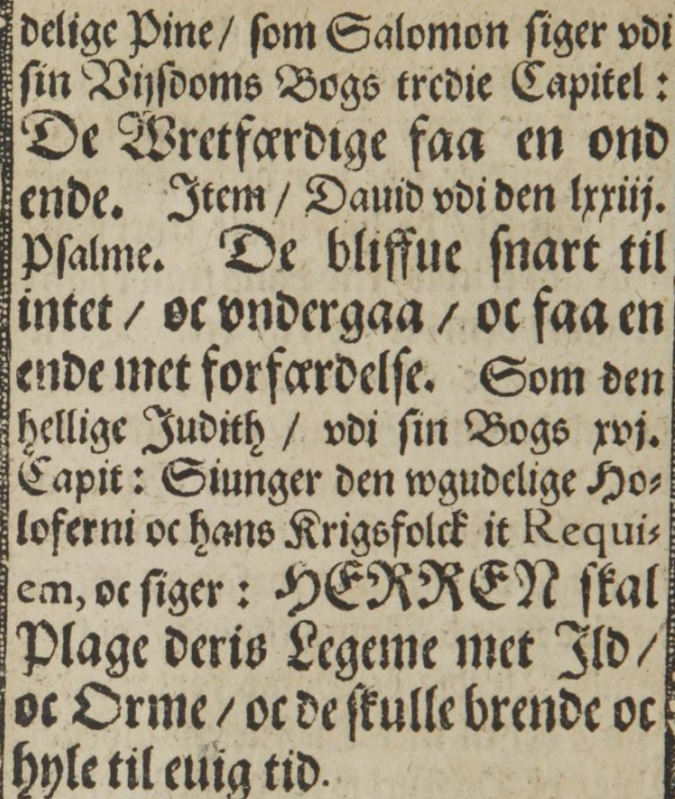 delige Pine/ som Salomon siger vdi
sin Vijsdoms Bogs tredie Capitel :
De Wretfærdige faa en ond
ende. Item/ Dauid vdi den lxxiij.
Psalme. De bliffue snart til
intet / oc vndergaa / oc faa en
ende met forfærdelse. Som den
hellige Judith / vdi sin Bogs xvj.
Capit : Siunger den wgudelige Ho⸗
loferni oc hans Krigsfolck it Requi⸗
em, oc siger : HERREN skal
Plage deris Legeme met Ild/
oc Orme / oc de skulle brende oc
hyle til euig tid.